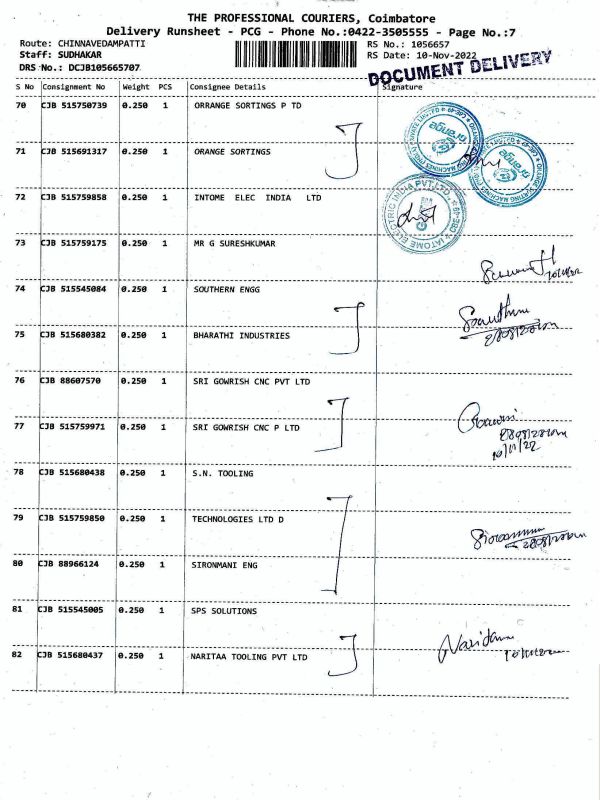 THE PROFESSIONAL COURIERS, Coimbatore
Delivery Runsheet - PCG - Phone No.:0422-3505555 - Page No.:7
Route: CHINNAVEDAMPATTI RS No.: 1056657
Staff: SUDHAKAR RS Date: 10-Nov-2022
DRS No.: DCJB105665707
DOCUMENT DELIVERY
S No Consignment No Weight PCS Consignee Details Signature
70 CJB 515750739 0.250 1 ORRANGE SORTINGS P TD
71 CJB 515691317 0.250 1 ORANGE SORTINGS
72 CJB 515759858 0.250 1 INTOME ELEC INDIA LTD
73 CJB 515759175 0.250 1 MR G SURESHKUMAR
74 CJB 515545084 0.250 1 SOUTHERN ENGG
75 CJB 515680382 0.250 1 BHARATHI INDUSTRIES
76 CJB 88607570 0.250 1 SRI GOWRISH CNC PVT LTD
77 CJB 515759971 0.250 1 SRI GOWRISH CNC P LTD
10/11/22
78 CJB 515680438 0.250 1 S.N. TOOLING
79 CJB 515759850 0.250 1 TECHNOLOGIES LTD D
80 CJB 88966124 0.250 1 SIRONMANI ENG
81 CJB 515545005 0.250 1 SPS SOLUTIONS
82 CJB 515680437 0.250 1 NARITAA TOOLING PVT LTD